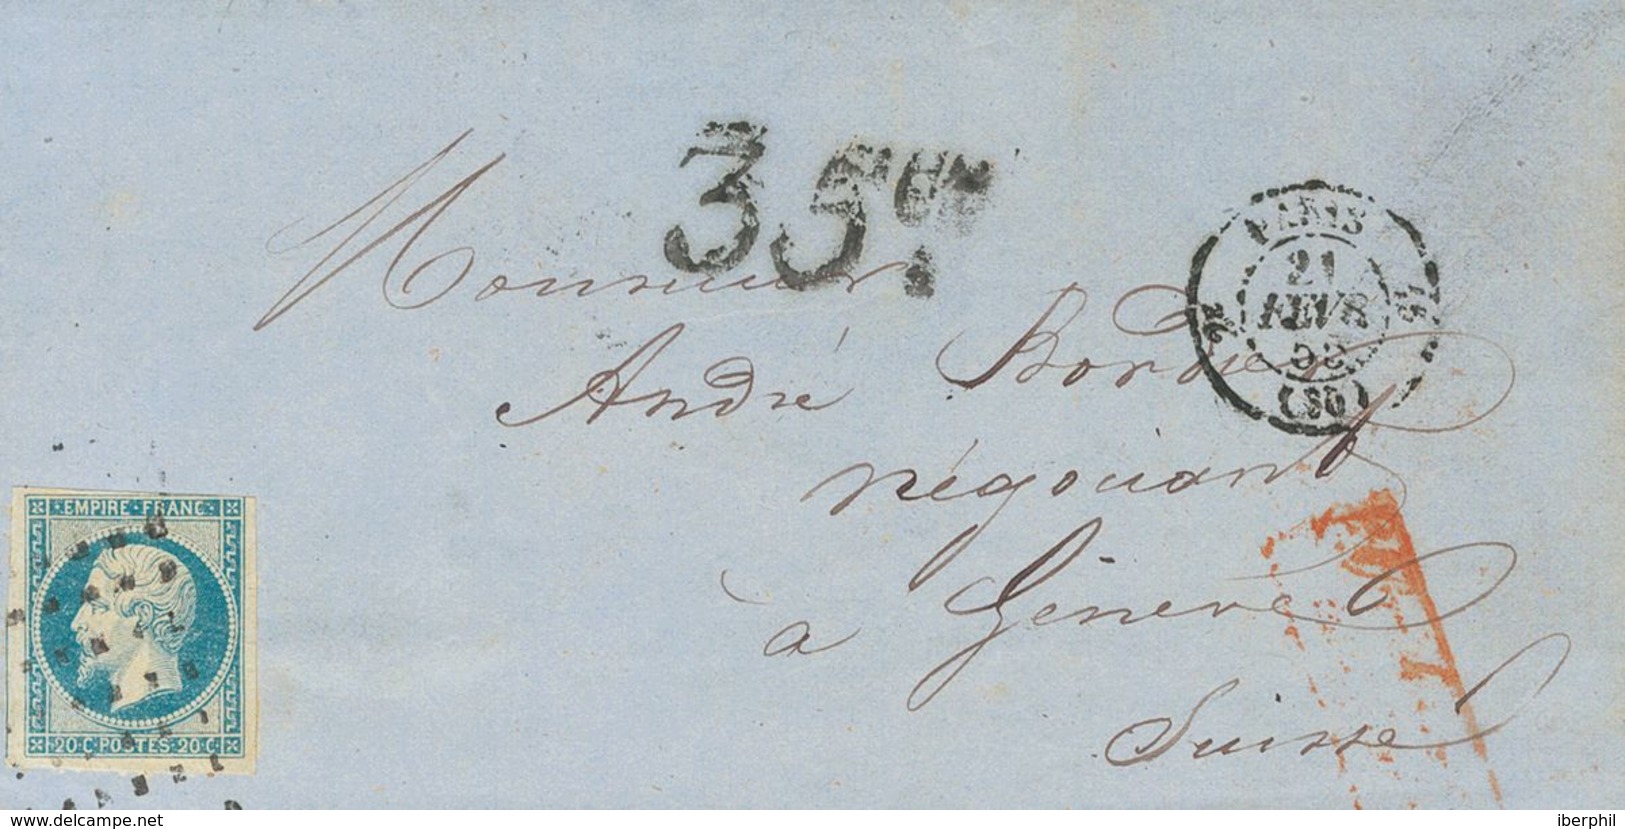 35
PARIS
21
FEVR
Monsieur
André Bordier
négociant
à Génève
Suisse
EMPIRE · FRANC ·
20·C·POSTES·20·C·
www.delcampe.net
iberphil